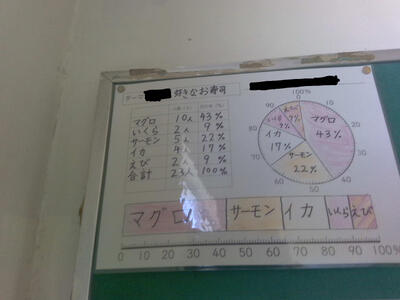 テーマ 好きなお寿司
人数(人) 百分率(%)
マグロ 10人 43%
いくら 2人 9%
サーモン 5人 22%
イカ 4人 17%
えび 2人 9%
合計 23人 100%
100%
0
10
20
30
40
50
60
70
80
90
マグロ
43%
サーモン
22%
イカ
17%
いくら
9%
えび
9%
マグロ サーモン イカ いくら えび
0 10 20 30 40 50 60 70 80 90 100%